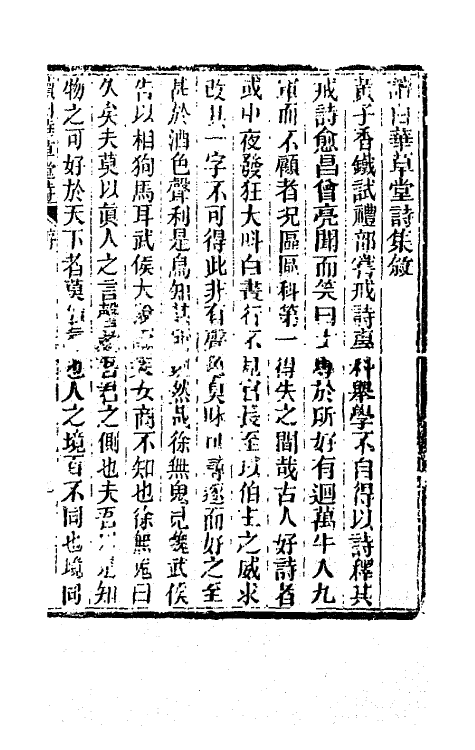 讀白華草堂詩集敘
黃子香鐵試禮部嘗戒詩專科舉學不自得以詩釋其
戒詩愈昌曾亮聞而笑曰士專於所好有迴萬牛入九
軍而不顧者況區區科第一得失之間哉古人好詩者
或中夜發狂大叫白晝行不見官長至以伯主之威求
改其一字不可得此非有聲色臭味可尋逐而好之至
甚於酒色聲利是烏知其然哉徐無鬼見魏武侯
告以相狗馬耳武侯大說女商不知也徐無鬼曰
久矣夫莫以真人之言謦欬吾君之側也夫吾不知
物之可好於天下者莫也人之境百不同也境同
讀白華草堂詩 序